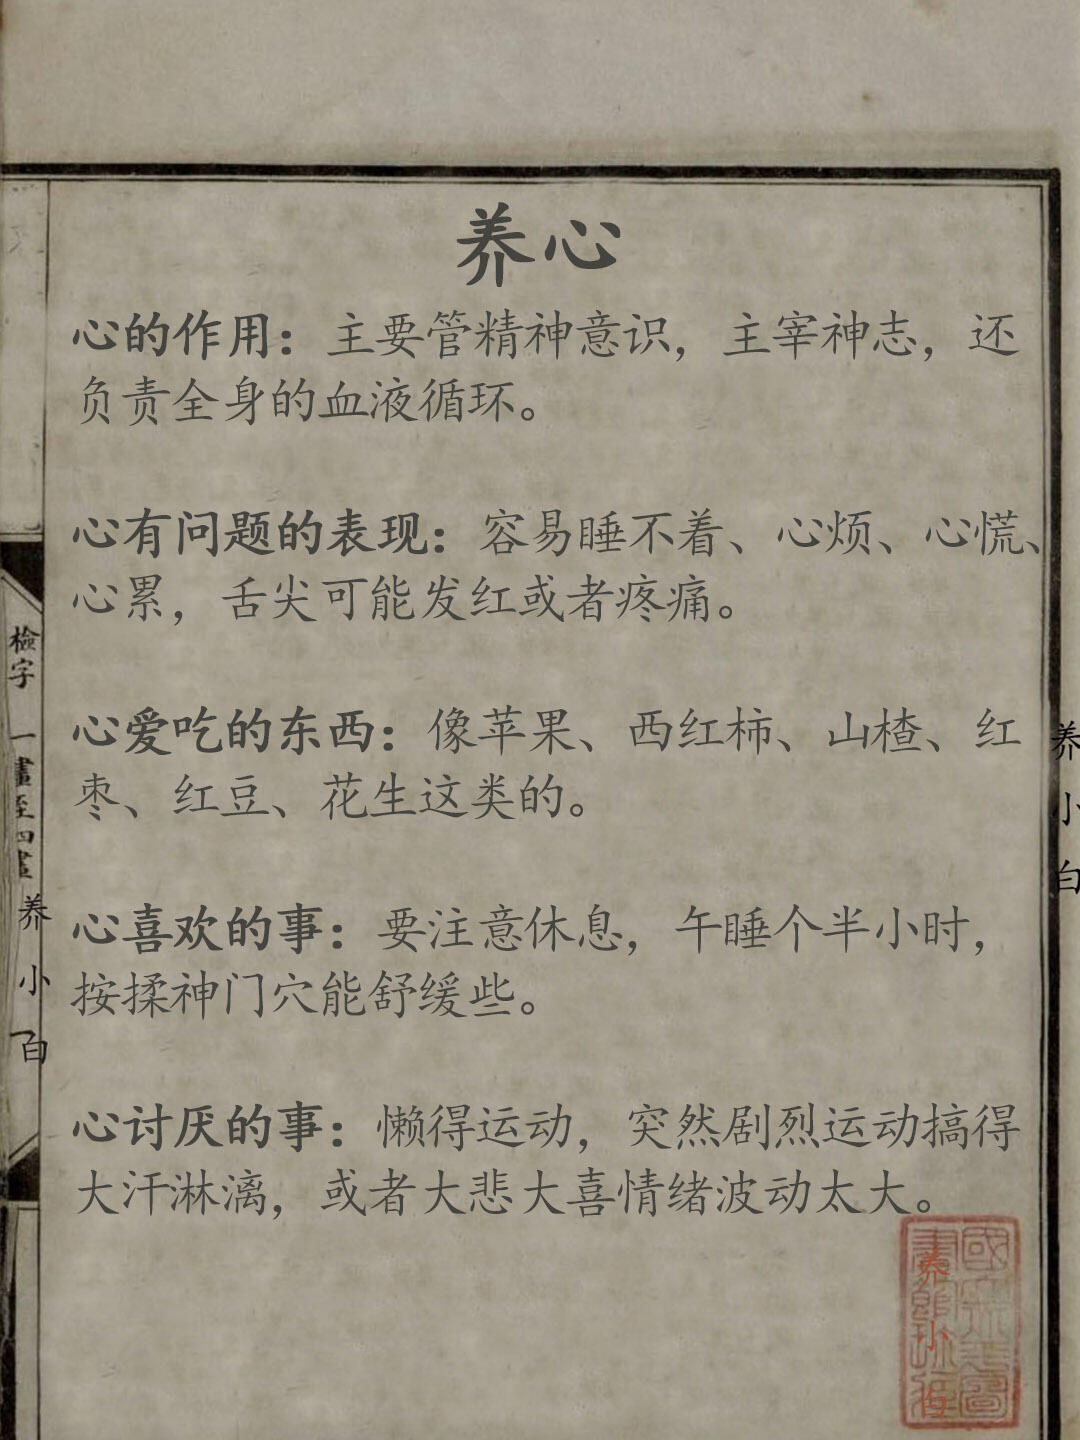 养心
心的作用：主要管精神意识，主宰神志，还
负责全身的血液循环。
心有问题的表现：容易睡不着、心烦、心慌、
心累，舌尖可能发红或者疼痛。
心爱吃的东西：像苹果、西红柿、山楂、红
枣、红豆、花生这类的。
心喜欢的事：要注意休息，午睡个半小时，
按揉神门穴能舒缓些。
心讨厌的事：懒得运动，突然剧烈运动搞得
大汗淋漓，或者大悲大喜情绪波动太大。
檢字
一畫至四畫
养小白
养小白
养小白